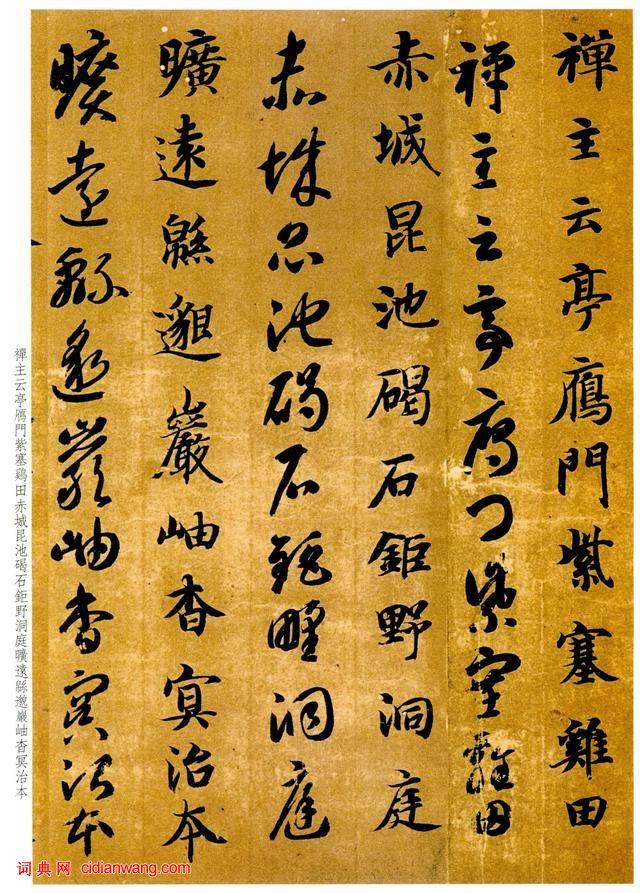 禪主云亭鴈門紫塞雞田
禪主云亭鴈門紫塞雞田
赤城昆池碣石鉅野洞庭
赤城昆池碣石鉅野洞庭
曠遠緜邈巖岫杳冥治本
曠遠緜邈巖岫杳冥治本
禪主云亭鴈門紫塞鷄田赤城昆池碣石鉅野洞庭曠遠緜邈巖岫杳冥治本
词典网 cidianwang.com